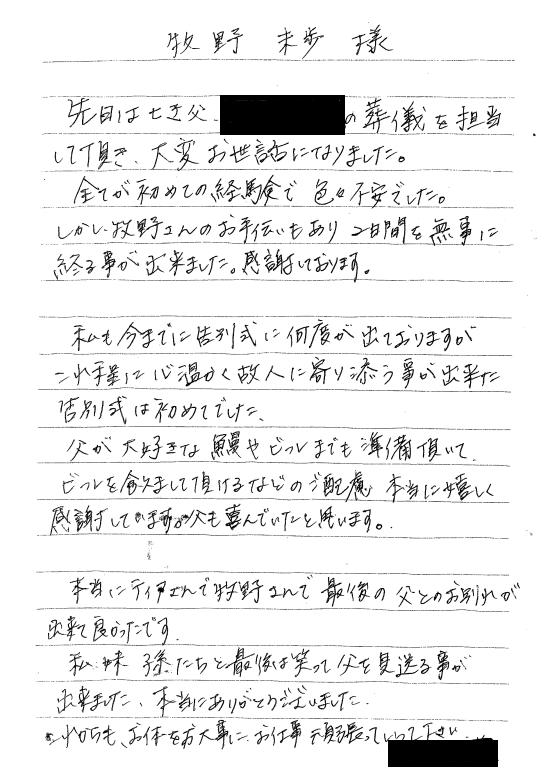 牧野 未歩 様
先日は亡き父、
の葬儀を担当
して頂き、大変お世話になりました。
全てが初めての経験で色々不安でした。
しかし牧野さんのお手伝いもあり2日間を無事に
終る事が出来ました。感謝しております。
私も今までに告別式に何度か出ておりますが
これ程に心温かく故人に寄り添う事が出来た
告別式は初めてでした。
父が大好きな鰻やビールまでも準備頂いて、
ビールを飲まして頂けるなどのご配慮 本当に嬉しく
感謝してます。父も喜んでいたと思います。
本当にティアさんで牧野さんで最後の父とのお別れが
出来て良かったです。
私 妹 孫たちと最後は笑って父を見送る事が
出来ました、本当にありがとうございました。
これからも、お体をお大事に、お仕事頑張っていって下さい。